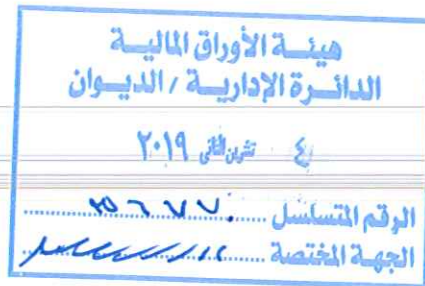 هيئة الأوراق المالية
الدائرة الإدارية / الديوان
٤ تشرين الثاني ٢٠١٩
الرقم المتسلسل
الجهة المختصة